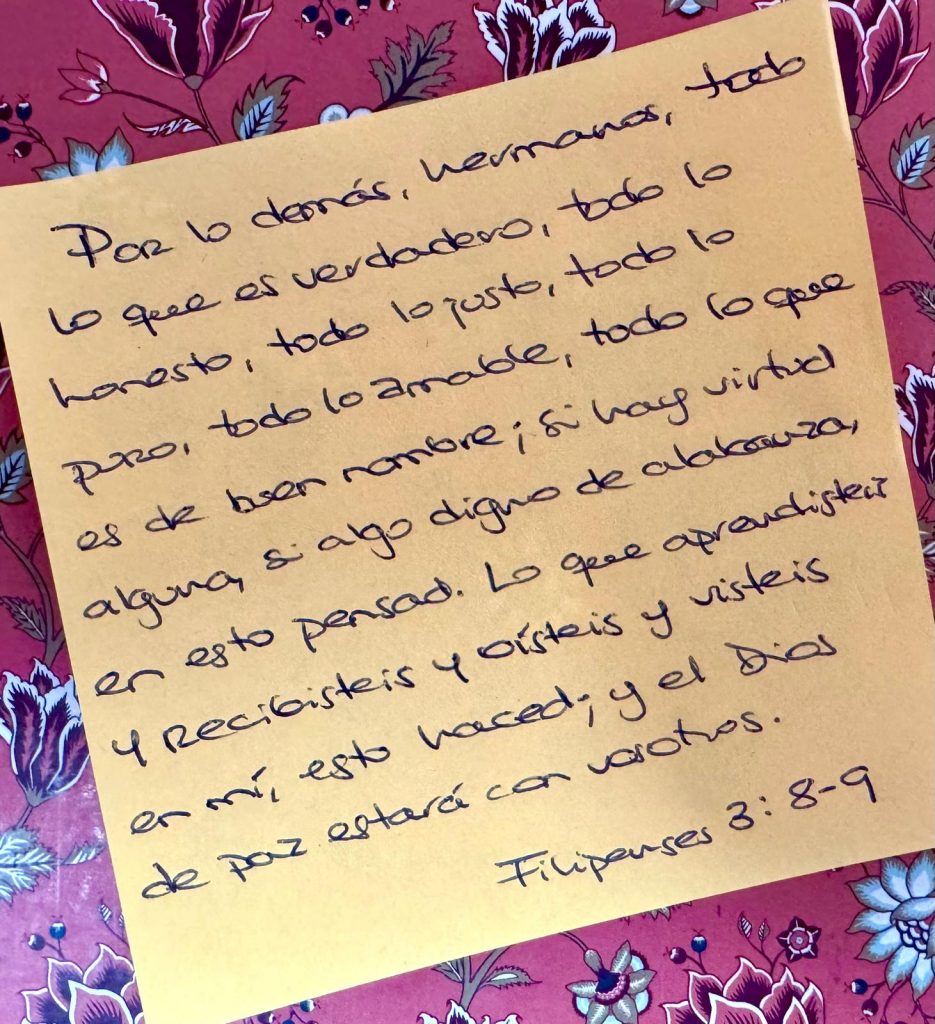 Por lo demás, hermanos, todo
lo que es verdadero, todo lo
honesto, todo lo justo, todo lo
puro, todo lo amable, todo lo que
es de buen nombre; si hay virtud
alguna, si algo digno de alabanza,
en esto pensad. Lo que aprendisteis
y recibisteis y oísteis y visteis
en mí, esto haced; y el Dios
de paz estará con vosotros.
Filipenses 3:8-9